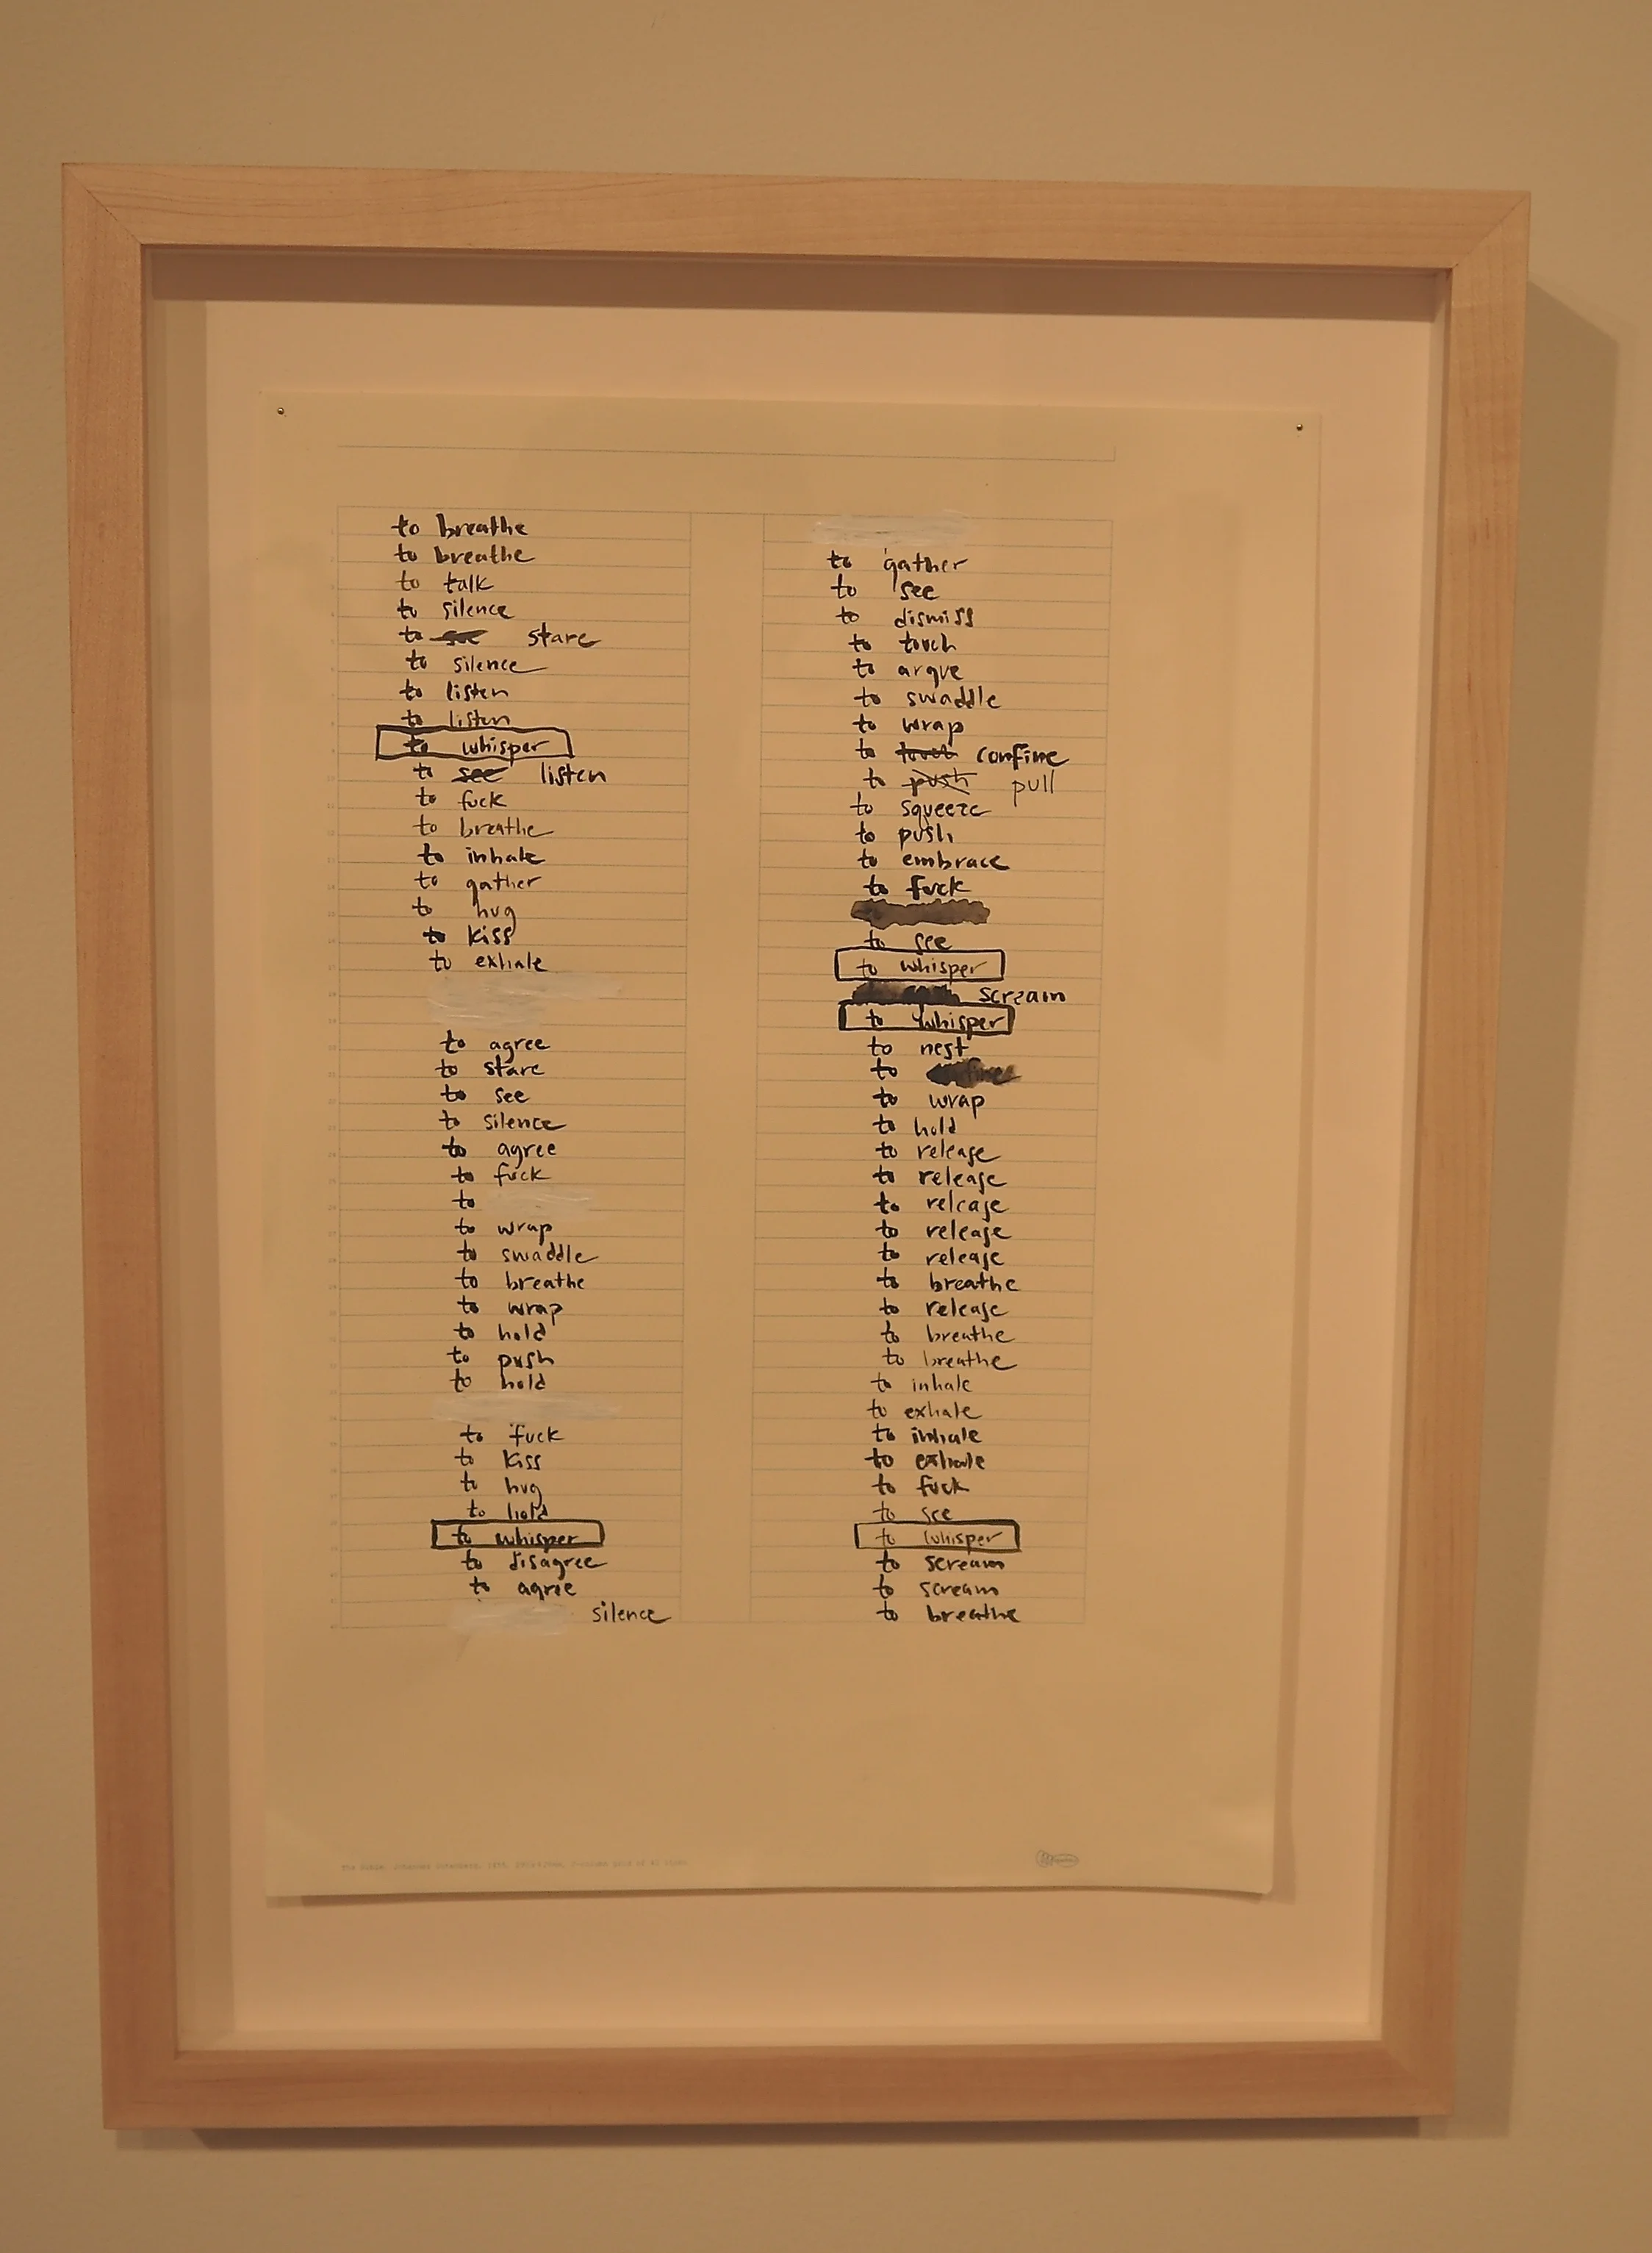 to breathe
to breathe
to talk
to silence
to see stare
to silence
to listen
to listen
to whisper
to see listen
to fuck
to breathe
to inhale
to gather
to hug
to kiss
to exhale
to agree
to stare
to see
to silence
to agree
to fuck
to
to wrap
to swaddle
to breathe
to wrap
to hold
to push
to hold
to fuck
to kiss
to hug
to hold
to whisper
to disagree
to agree
silence
to gather
to see
to dismiss
to touch
to argue
to swaddle
to wrap
to confine
to push pull
to squeeze
to push
to embrace
to fuck
to see
to whisper
scream
to whisper
to nest
to
to wrap
to hold
to release
to release
to release
to release
to release
to breathe
to release
to breathe
to breathe
to inhale
to exhale
to inhale
to exhale
to fuck
to see
to whisper
to scream
to scream
to breathe